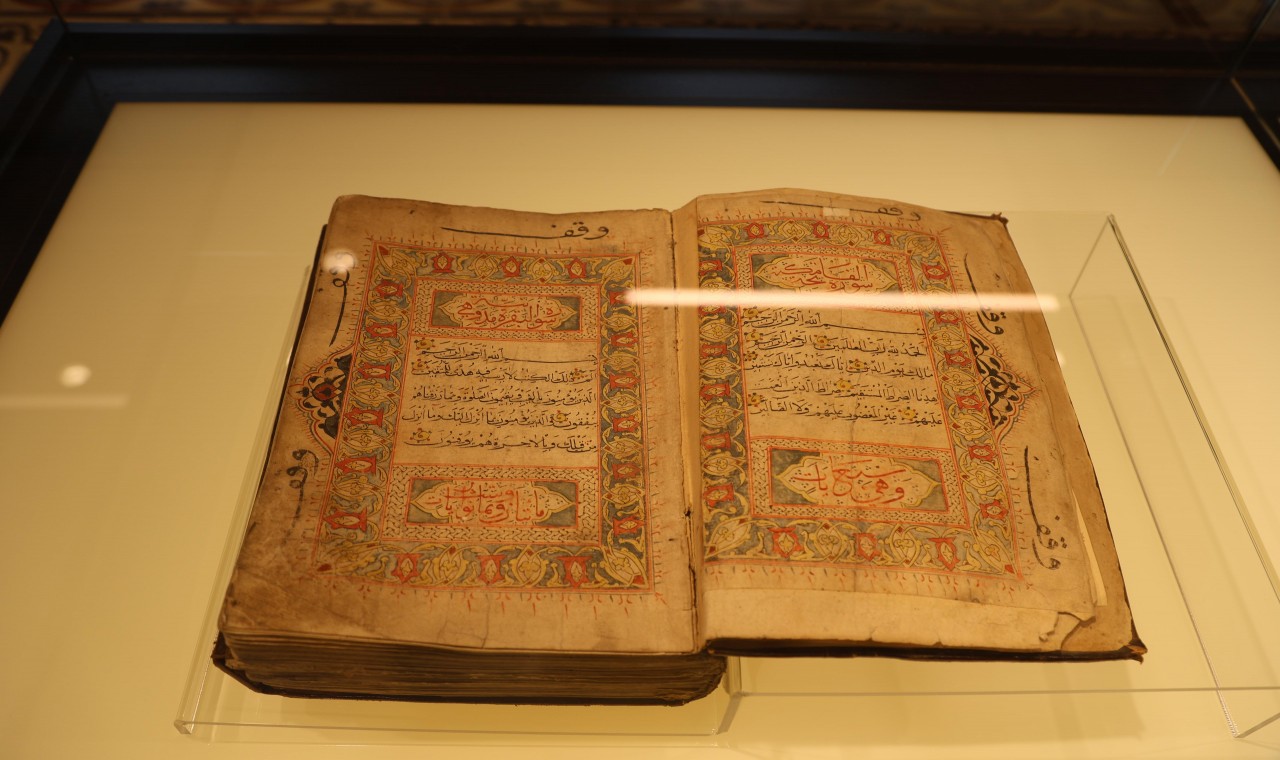 وقف
سورة الفاتحة مكية
بسم الله الرحمن الرحيم
الحمد لله رب العلمين الرحمن الرحيم
مالك يوم الدين اياك نعبد واياك نستعين
اهدنا الصراط المستقيم صراط الذين انعمت
عليهم غير المغضوب عليهم ولا الضالين
وهي سبع ايات
وقف
وقف
وقف
سورة البقرة مدنية وهي
بسم الله الرحمن الرحيم
الم ذلك الكتاب لا ريب فيه هدى للمتقين
الذين يؤمنون بالغيب ويقيمون الصلوة ومما رزقناهم
ينفقون والذين يؤمنون بما انزل اليك وما انزل
من قبلك وبالاخرة هم يوقنون
مائتان وثمانون ايات
وقف
وقف